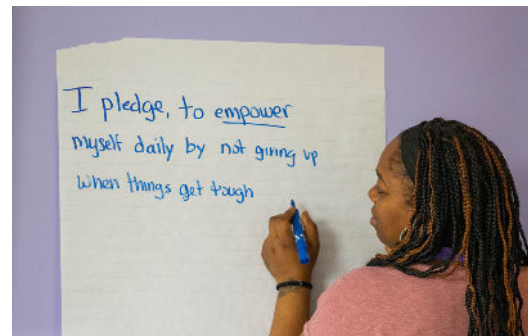 I pledge, to empower
myself daily by not giving up
when things get tough